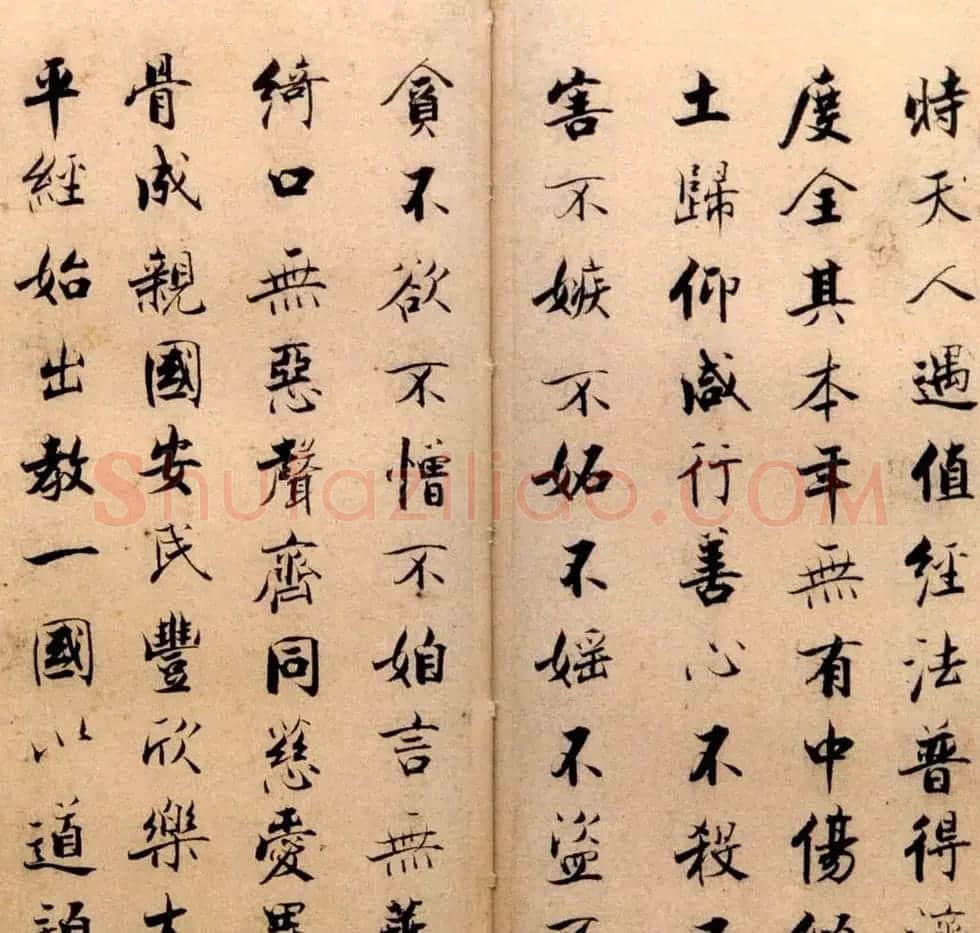 時天人遇值經法普得
度全其本年無有中傷
土歸仰咸行善心不殺
害不嫉不妬不婬不盜
貪不欲不憎不言無
綺口無惡聲齊同慈愛
骨成親國安民豐欣樂
平經始出教一國以道
Shufaziliao.COM